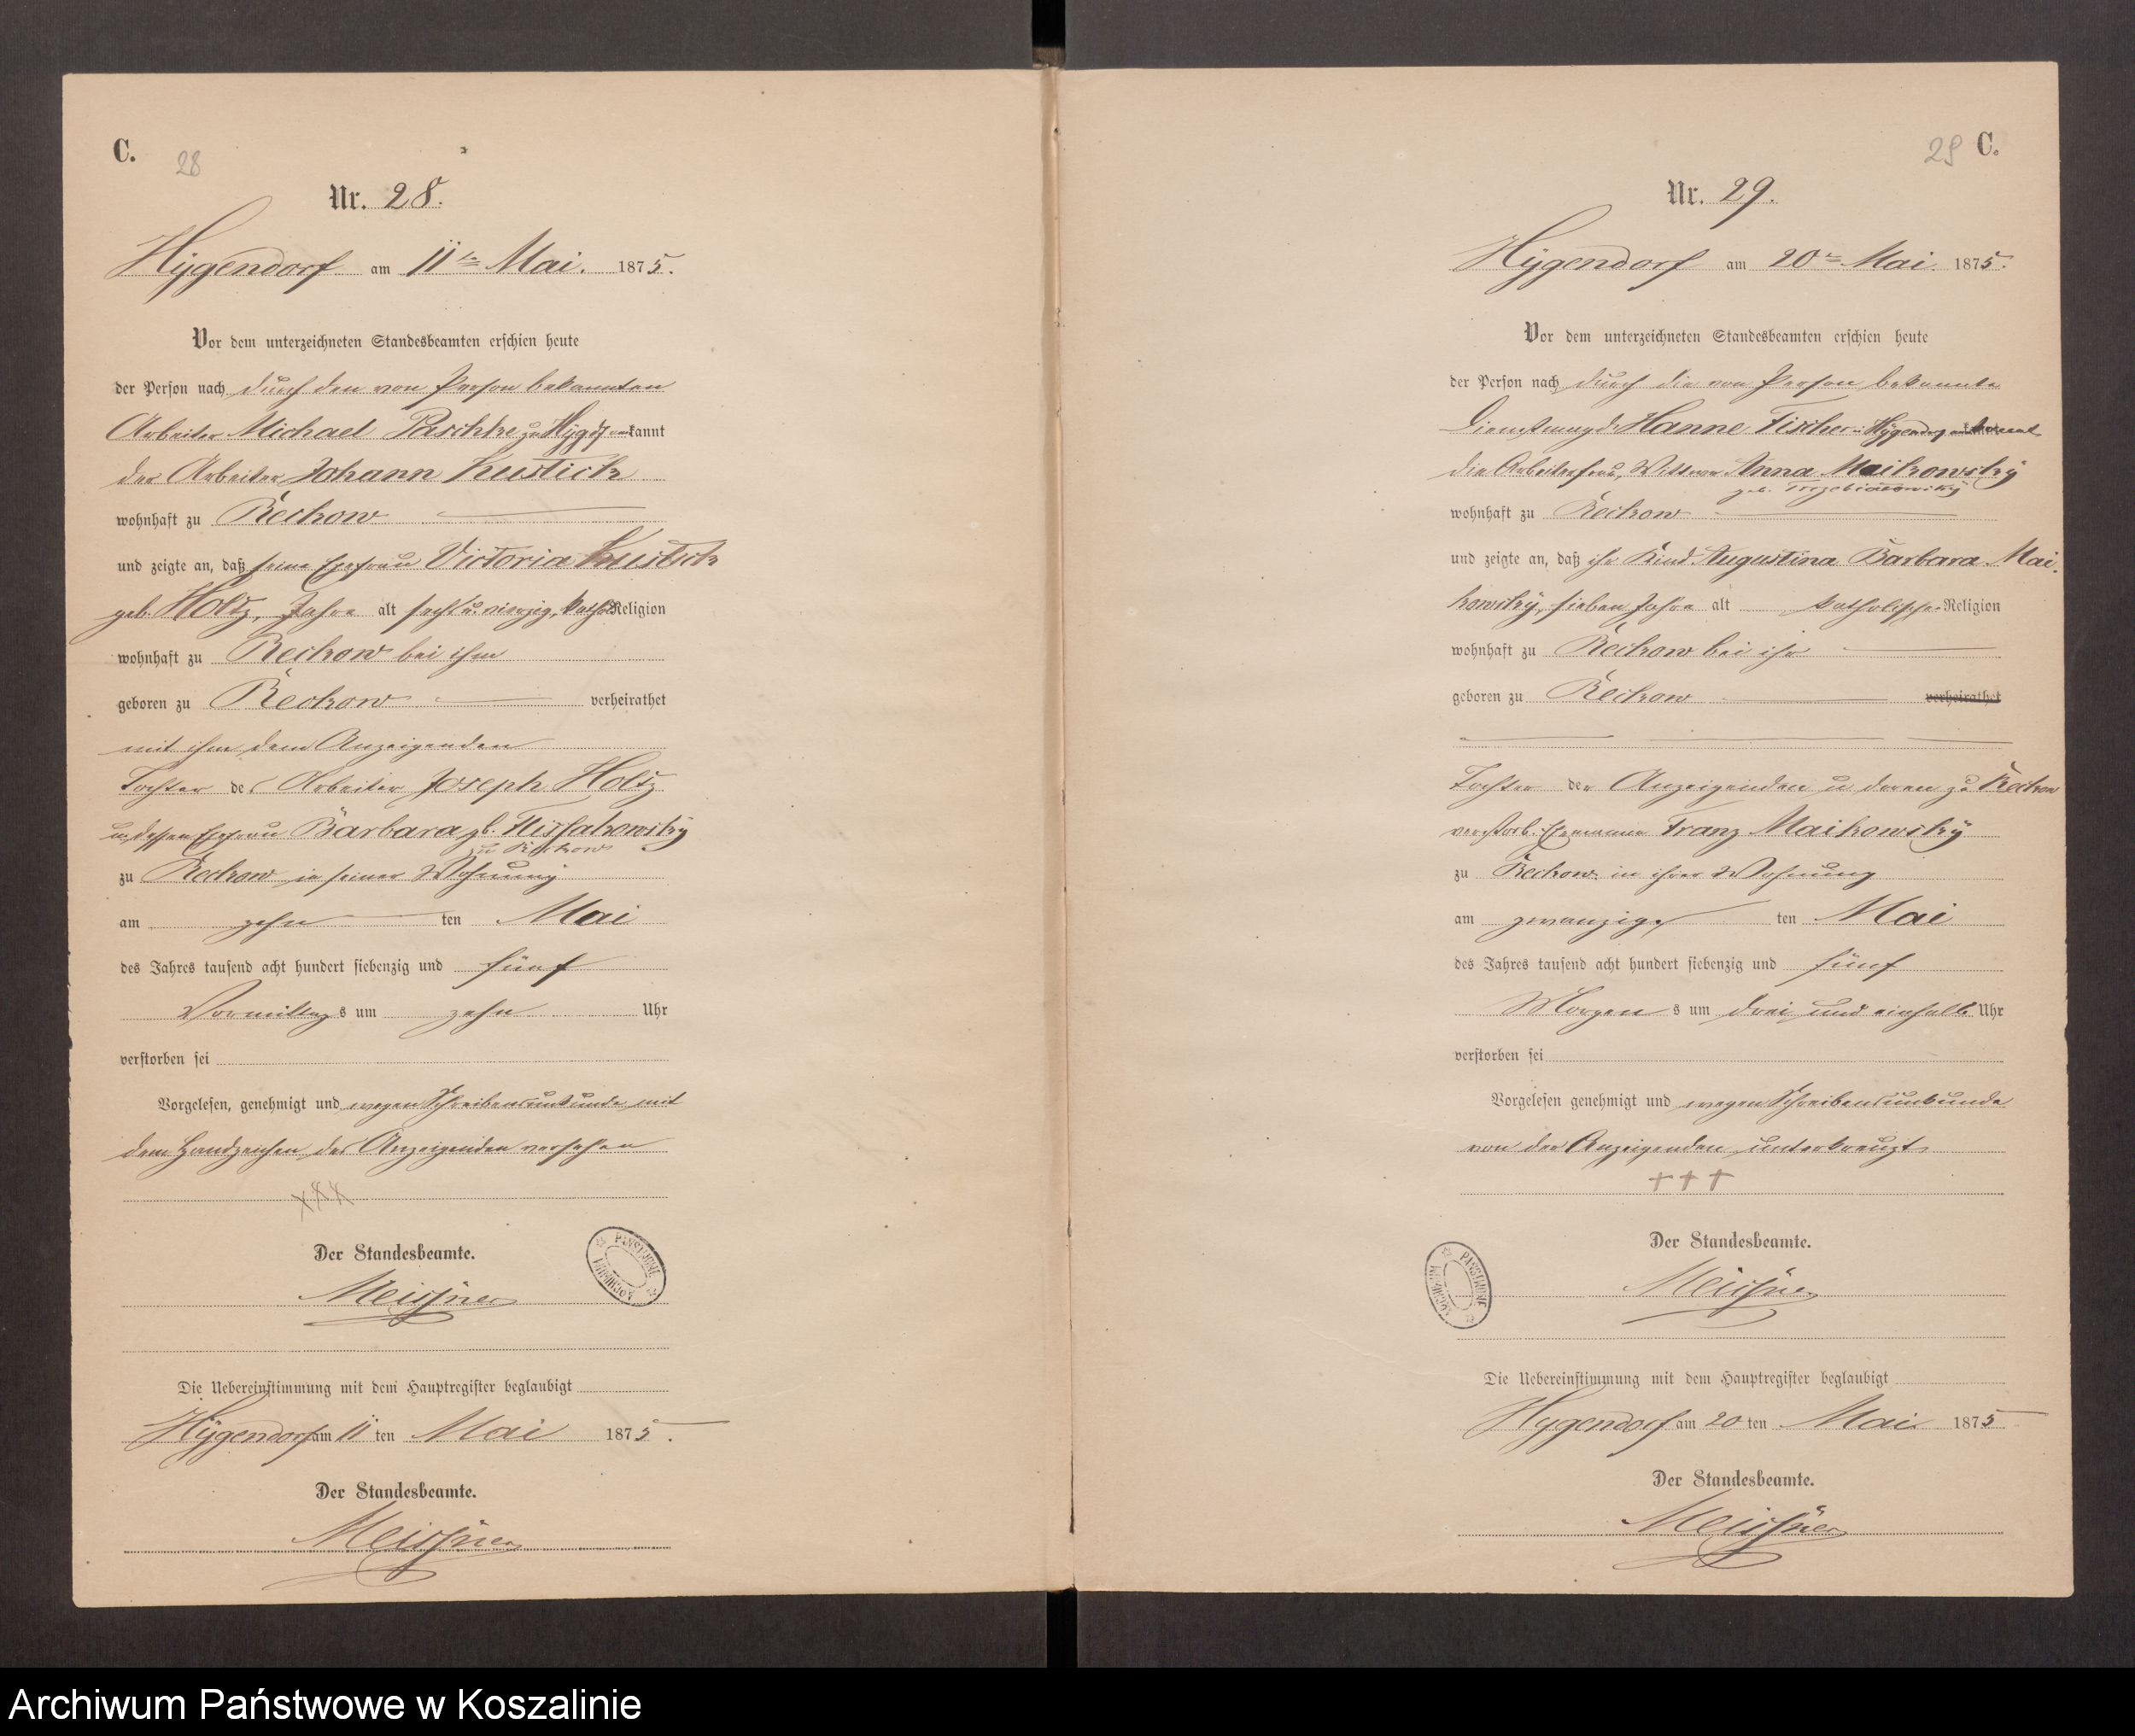 C. 28
Nr. 28.
Hygendorf am 11ten Mai. 1875.
Vor dem unterzeichneten Standesbeamten erschien heute
der Person nach durch den von Person bekannten
Arbeiter Michael Paschke zu Hygdf erkannt
der Arbeiter Johann Kustsch
wohnhaft zu Reckow
und zeigte an, daß seine Ehefrau Victoria Kustsch
geb. Holtz, Jahre alt sechs u. vierzig, kathol. Religion
wohnhaft zu Reckow bei ihm
geboren zu Reckow verheirathet
mit ihm dem Anzeigenden
Tochter des Arbeiter Joseph Holtz
u. dessen Ehefrau Barbara gb.
zu Reckow
zu Reckow in seiner Wohnung
am zehn ten Mai
des Jahres tausend acht hundert siebenzig und fünf
Vormittag s um zehn Uhr
verstorben sei
Vorgelesen, genehmigt und wegen Schreibensunkunde mit
dem Handzeichen des Anzeigenden versehen
xxx
Der Standesbeamte.
Meissner
Die Uebereinstimmung mit dem Hauptregister beglaubigt
Hygendorf am 11 ten Mai 1875.
Der Standesbeamte.
Meissner
29 C.
Nr. 29.
Hygendorf am 20ten Mai. 1875.
Vor dem unterzeichneten Standesbeamten erschien heute
der Person nach durch die von Person bekannte
Dienstmagd Hanne Fischer Hygendorf
die Arbeiterfrau, Wittwe Anna Maikowsky
geb.
wohnhaft zu Reckow
und zeigte an, daß ihr Kind Augustina Barbara Mai-
kowsky, sieben Jahre alt katholischer Religion
wohnhaft zu Reckow bei ihr
geboren zu Reckow verheirathet
Tochter der Anzeigenden u. deren zu Reckow
verstorb. Ehemann Franz Maikowsky
zu Reckow in ihrer Wohnung
am zwanzigs ten Mai
des Jahres tausend acht hundert siebenzig und fünf
Morgen s um drei und einhalb Uhr
verstorben sei
Vorgelesen genehmigt und wegen Schreibensunkunde
von der Anzeigenden unterkreuzt.
+++
Der Standesbeamte.
Meissner
Die Uebereinstimmung mit dem Hauptregister beglaubigt
Hygendorf am 20 ten Mai. 1875
Der Standesbeamte.
Meissner
Archiwum Państwowe w Koszalinie